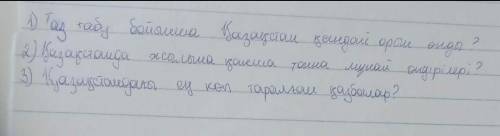 1) Газ табу бойынша Қазақстан қандай орын алды?
2) Қазақстанда жылына қанша тонна мұнай өндіріледі?
3) Қазақстандағы ең көп таралған қазбалар?